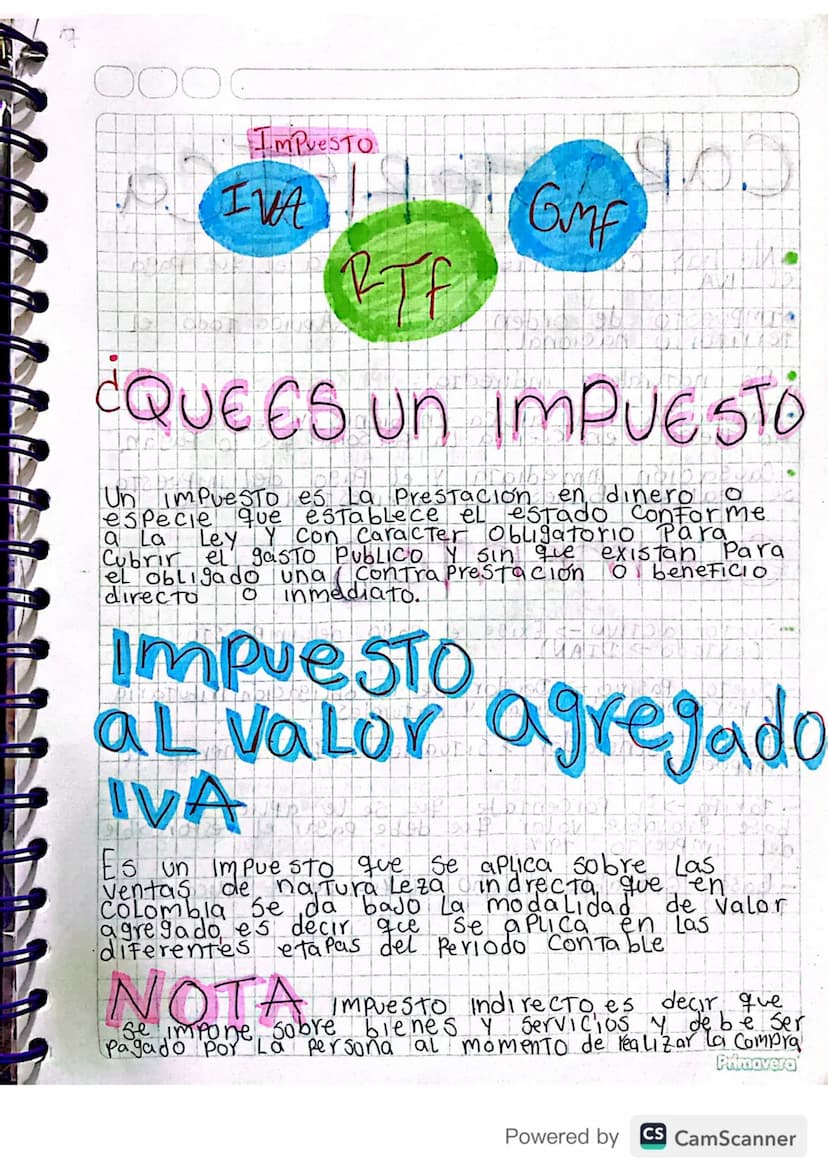 Impuesto
IVA
RTF
GMF
¿QUE ES UN IMPUESTO
Un impuesto es la prestación en dinero o
especie que establece el estado conforme
a la Ley y con caracter obligatorio para
cubrir el gasto publico y sin que existan para
el obligado una contraprestación o beneficio
directo o inmediato.
Impuesto
al valor agregado
IVA
Es un impuesto que se aplica sobre las
ventas de naturaleza indrecta que en
Colombia se da bajo la modalidad de valor
agregado, es decir que se aplica en las
diferentes etapas del periodo contable
NOTA Impuesto indirecto es decir que
se impone sobre bienes y servicios y debe ser
pagado por la persona al momento de realizar la compra
Primavera
Powered by CS CamScanner